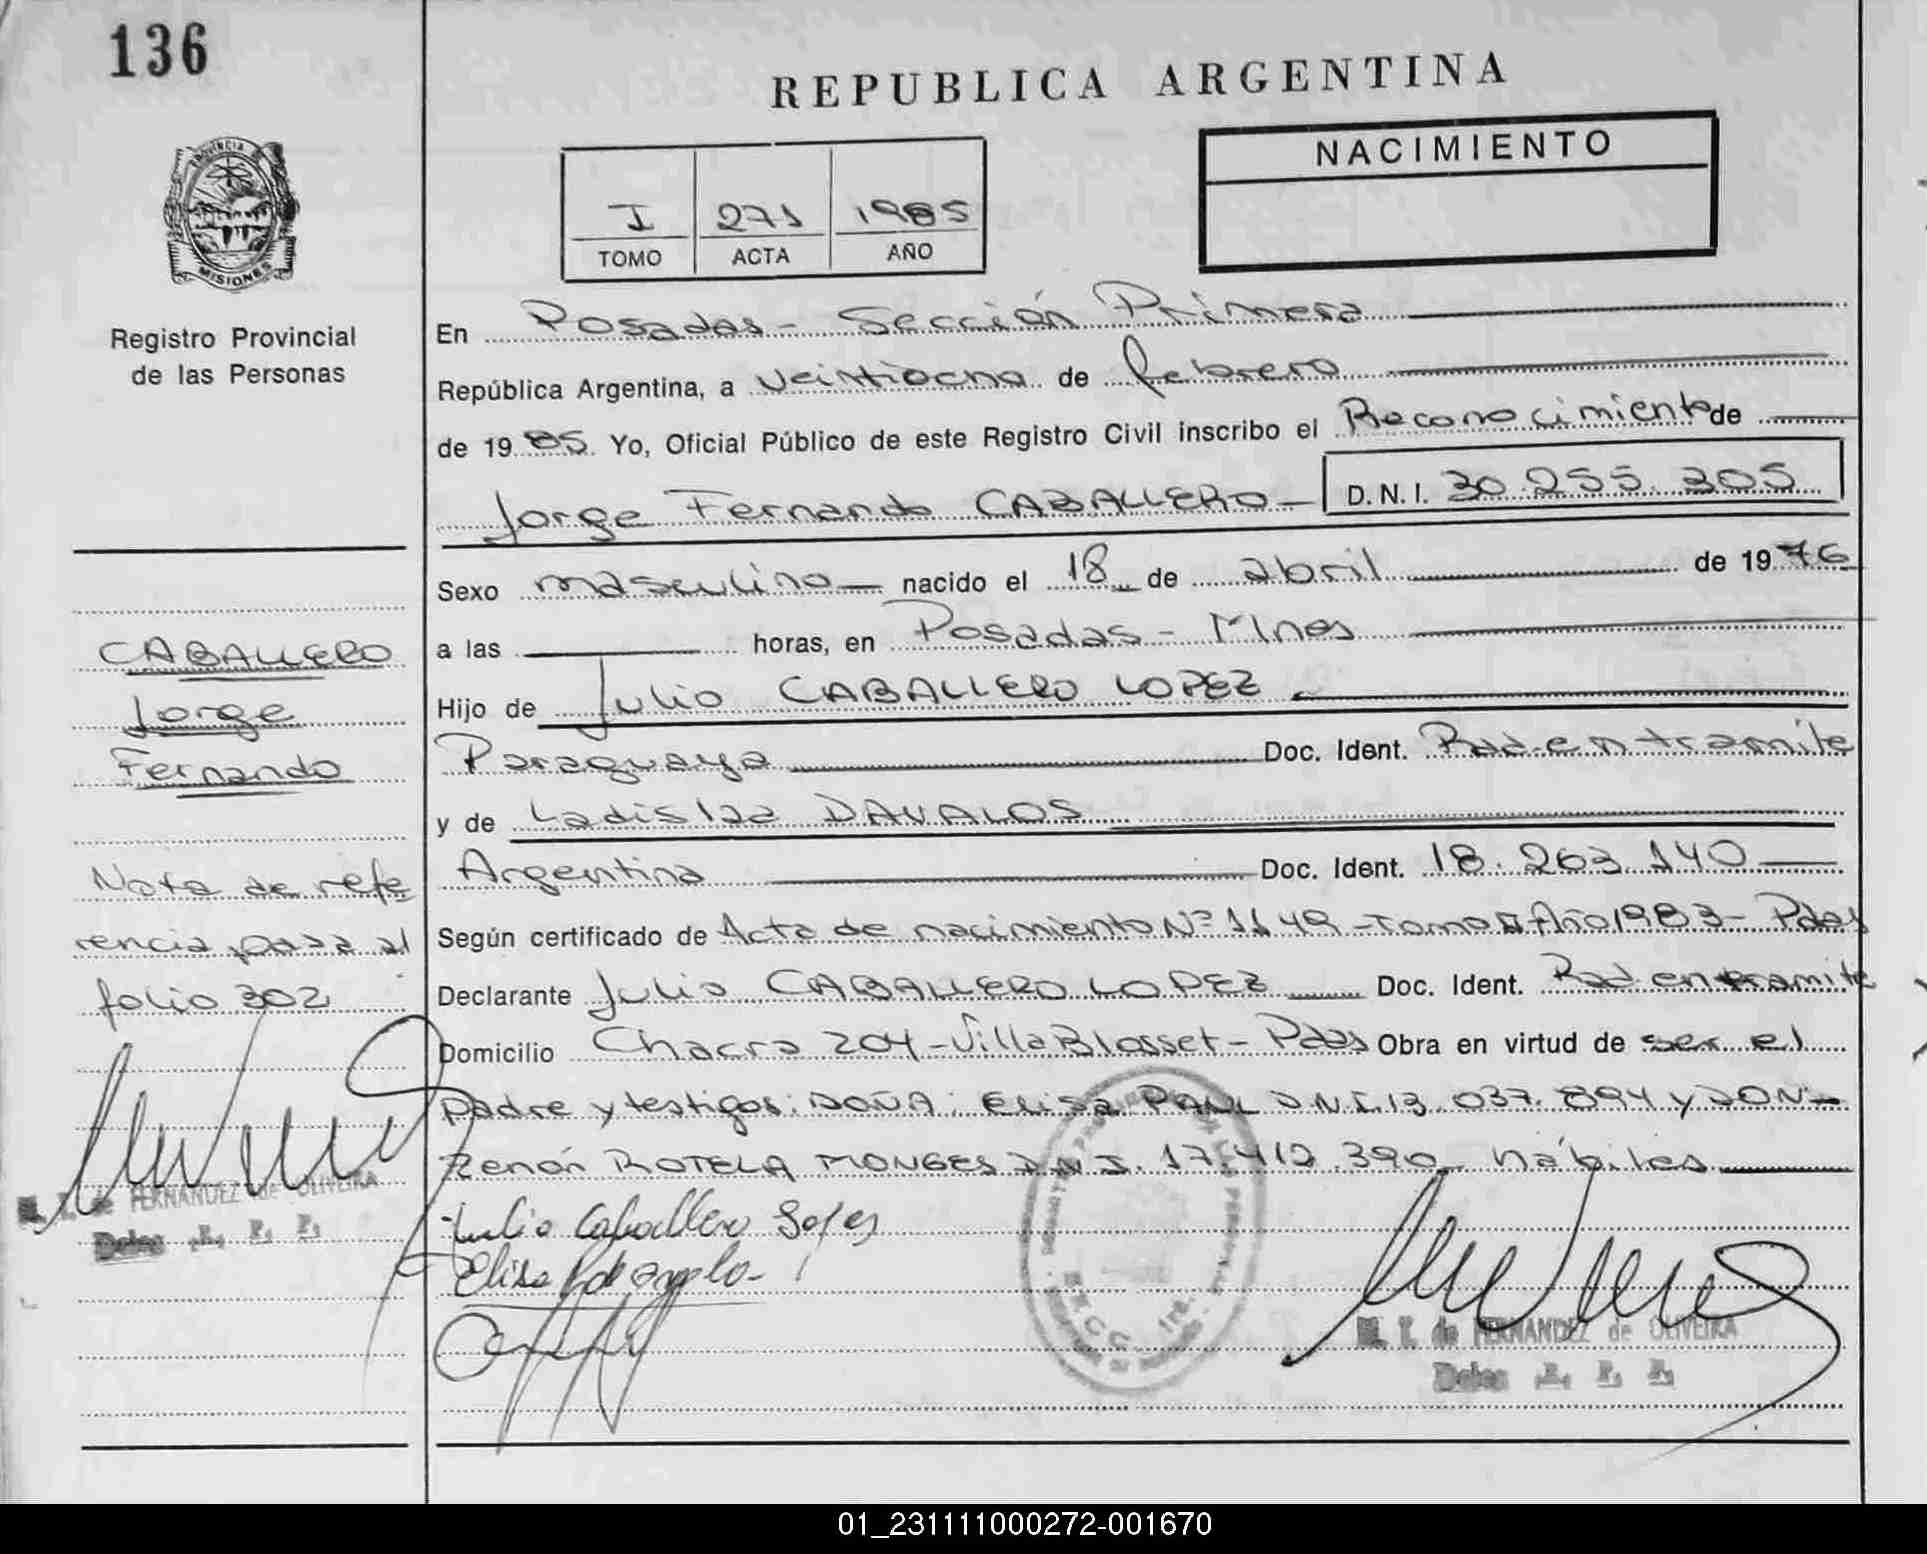 136
REPUBLICA ARGENTINA
NACIMIENTO
I 271 1985
TOMO ACTA AÑO
PROVINCIA DE
MISIONES
Registro Provincial
de las Personas
En Posadas - Sección Primera
República Argentina, a veintiocho de febrero
de 1985. Yo, Oficial Público de este Registro Civil inscribo el Reconocimiento de
Jorge Fernando CABALLERO - D.N.I. 30.255.305
Sexo masculino nacido el 18 de abril de 1976
a las horas, en Posadas - Mnes
Hijo de Julio CABALLERO LOPEZ
Paraguaya Doc. Ident. Rad en tramite
y de Ladislaa DAVALOS
Argentina Doc. Ident. 18.263.140
Según certificado de Acta de nacimiento Nº 1149 - Tomo II Año 1983 - Pdas
Declarante Julio CABALLERO LOPEZ Doc. Ident. Rad en tramite
Domicilio Chacra 204 - Villa Blosset - Pdas Obra en virtud de ser el
padre y testigos: DOÑA: Elisa D.N.I. 13.037.894 y DON-
Zenón ROTELA MONGES D.N.I. 17.412.390 hábiles
Julio Caballero Lopes
Elisa
CABALLERO
Jorge
Fernando
Nota de refe
rencia pasa al
folio 302
M. I. de FERNANDEZ de OLIVEIRA
Deleg. R. P. P.
M. I. de FERNANDEZ de OLIVEIRA
Deleg. R. P. P.
01_231111000272-001670